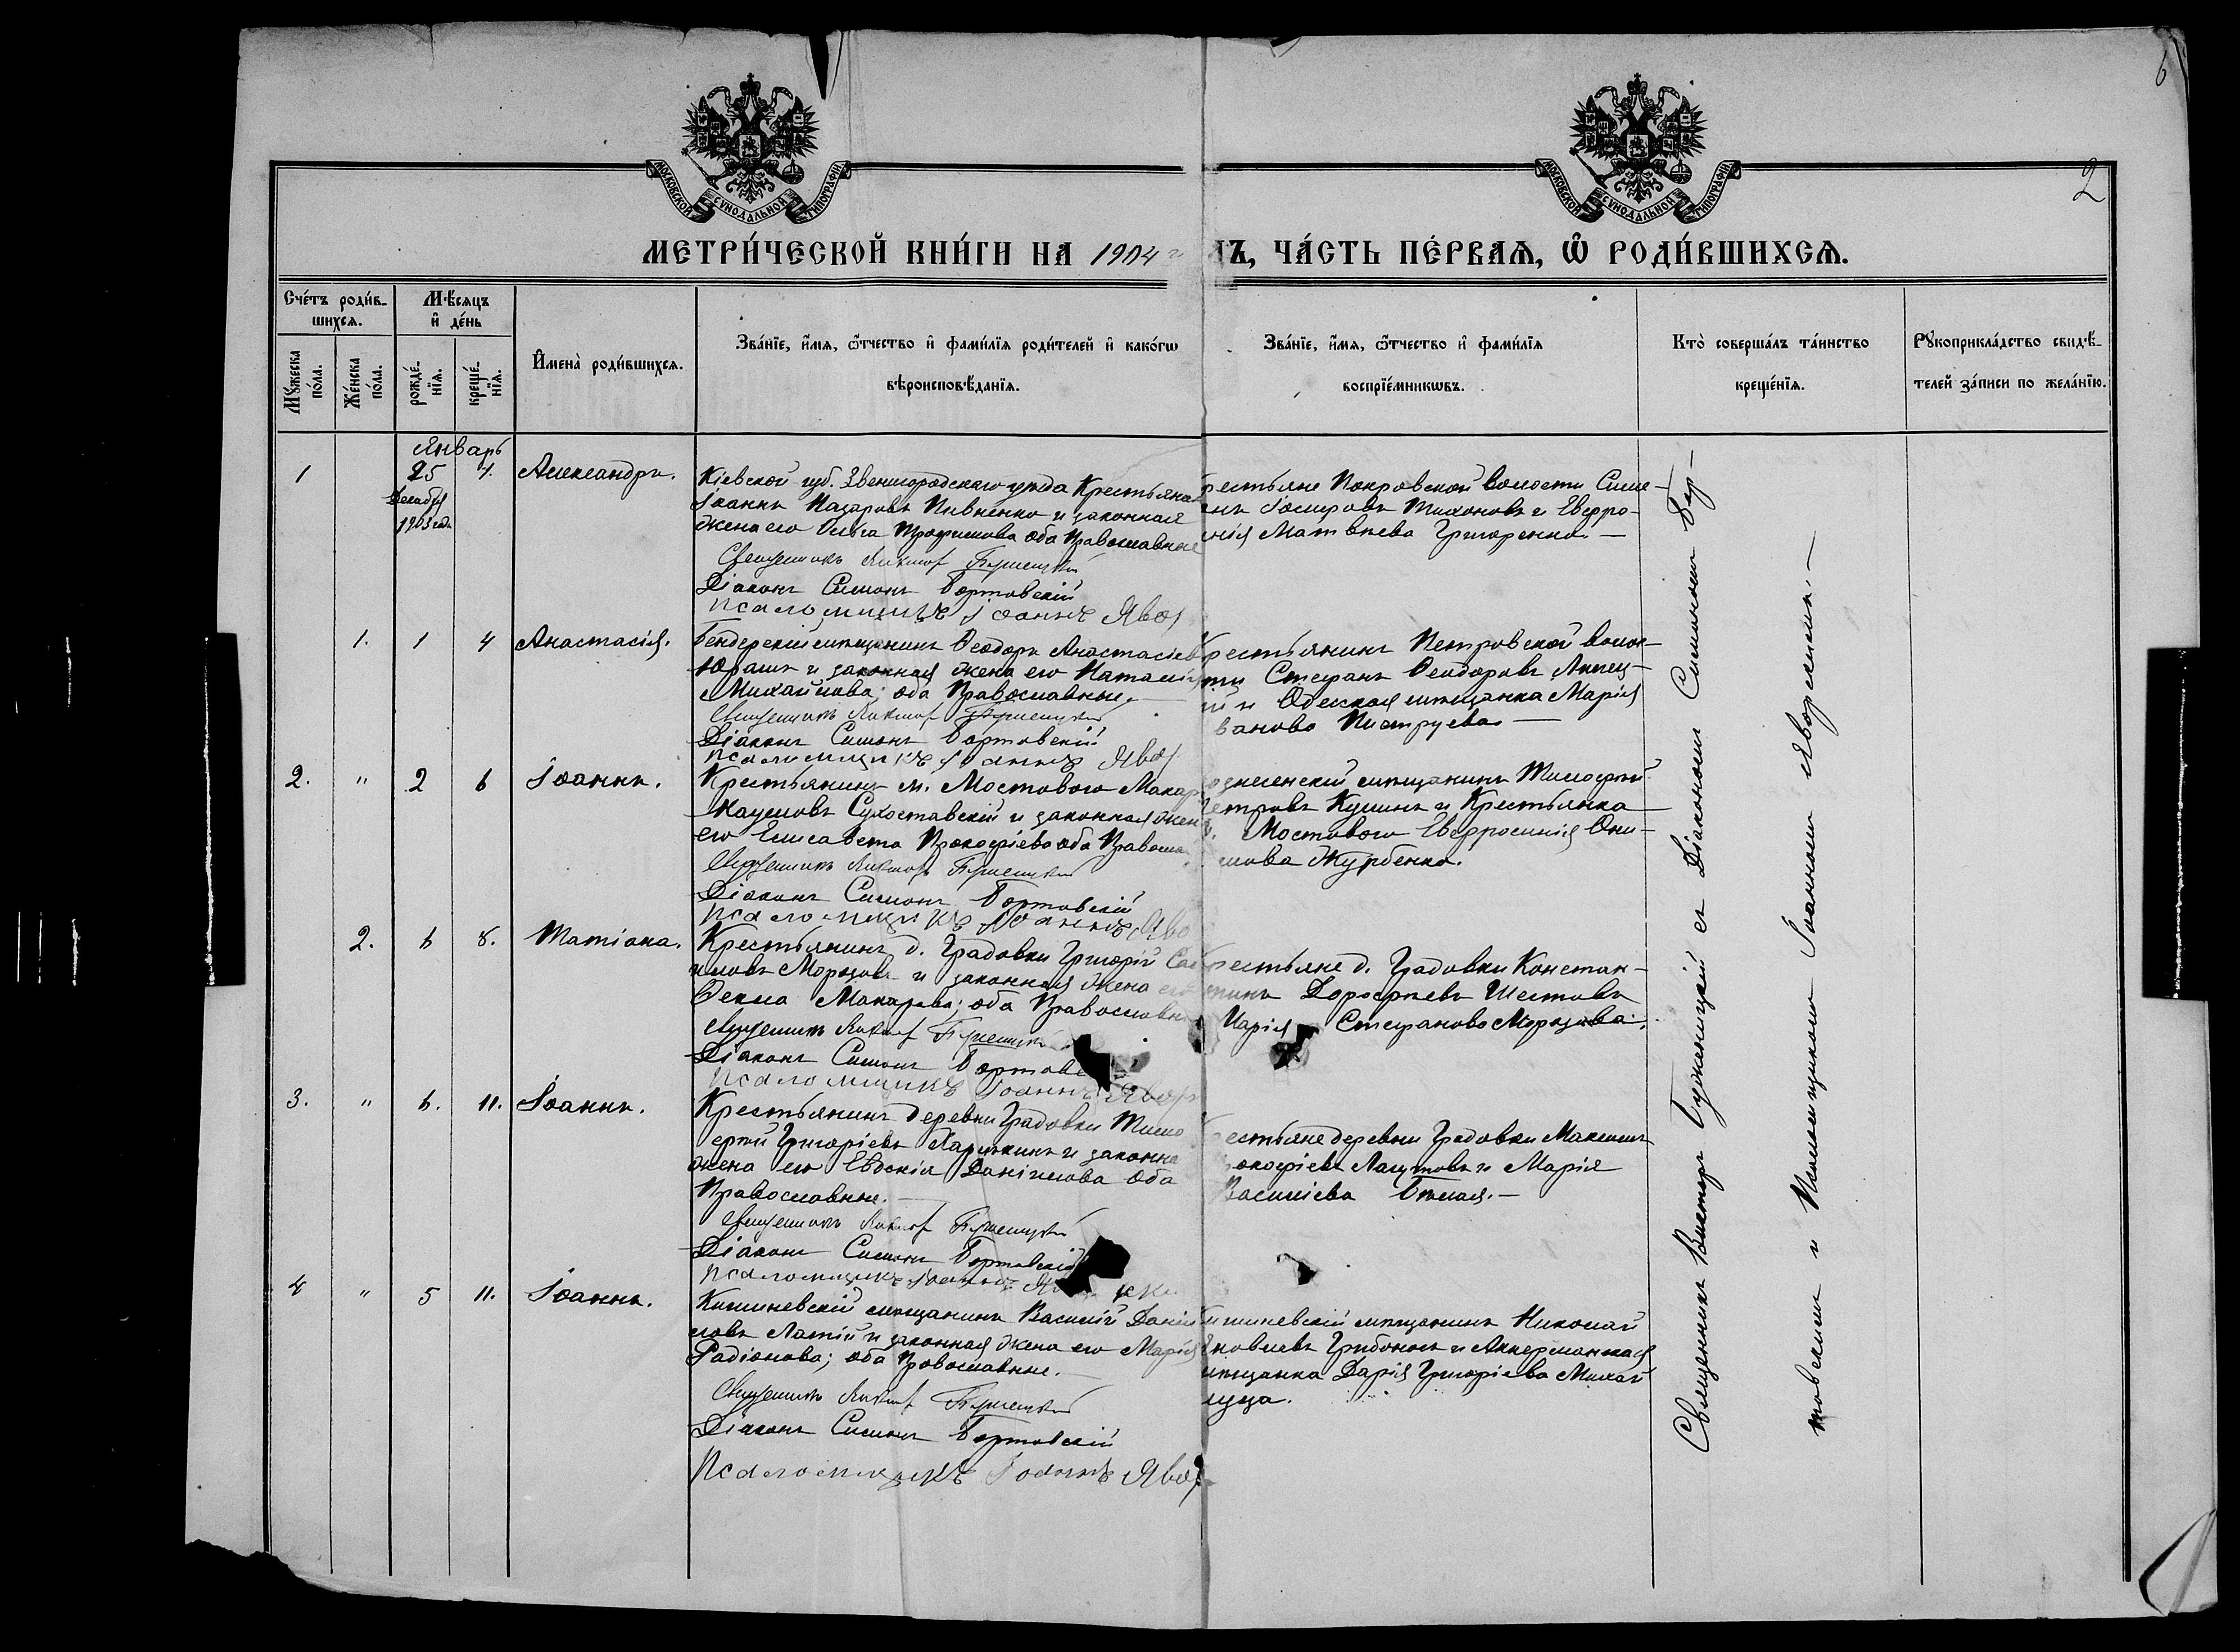 6
2
МОСКОВСКОЙ СѴНОДАЛЬНОЙ ТИПОГРАФІИ
МОСКОВСКОЙ СѴНОДАЛЬНОЙ ТИПОГРАФІИ
МЕТРИ́ЧЕСКОЙ КНИ́ГИ НА 1904 г
ДЪ, ЧА́СТЬ ПЕ́РВАѦ, Ѽ РОДИ́ВШИХСѦ.
Сче́тъ роди́в-
шихсѧ.
Мꙋ́жеска по́ла.
Же́нска по́ла.
Мѣ́сяцъ
и҆ де́нь
рожде́-нїѧ.
креще́-нїѧ.
И҆мена̀ роди́вшихсѧ.
Зва́нїе, и҆́мѧ, ѿтчество и҆ фами́лїѧ роди́телей и҆ како́гѡ
вѣроисповѣ́данїѧ.
Зва́нїе, и҆́мѧ, ѿтчество и҆ фами́лїѧ
воспрїе́мникѡвъ.
Кто̀ соверша́лъ та́инство
креще́нїѧ.
Рꙋкоприкла́дство свидѣ́-
телей за́писи по жела́нїю.
Январь
1 25 Декабря 1903 год. Александръ.
Кіевской губ. Звенигородскаго уѣзда Крестьяне
Іоаннъ Назаровъ Пивненко и законная
жена его Ольга Трофимова оба Православные
Священникъ Викторъ
Діаконъ Симонъ Бортовскій
Псаломщикъ Іоаннъ Явор
рестьяне Покровской волости Симе-
онъ Іосифовъ Тихоновъ и Евфро-
инія Матвѣева Григоренко. —
1. 1 4 Анастасія.
Бендерскій мѣщанинъ Ѳеодоръ Анастасіев
Юрашъ и законная жена его Наталія
Михайлова; оба Православные. —
Священникъ Викторъ
Діаконъ Симонъ Бортовскій
Псаломщикъ Іоаннъ Явор
Крестьянинъ Петровской волос-
ти Стефанъ Ѳеодоровъ Липец-
ій и Одесская мѣщанка Марія
ванова Пиструева —
2. " 2 6 Іоаннъ.
Крестьянинъ м. Мостового Макар
Наумовъ Сухоставскій и законная жен
его Елисавета Прокофіева оба Правосла
Священникъ Викторъ
Діаконъ Симонъ Бортовскій
Псаломщикъ Іоаннъ Яво
ознесенскій мѣщанинъ Тимофей
Петровъ Кушинъ и Крестьянка
Мостового Евфросинія Они-
мова Журбенко.
2. 6 8. Татіана.
Крестьянинъ д. Градовки Григорій Сав
иловъ Морозовъ и законная жена его
Ѳекла Макарова; оба Православны
Священникъ Викторъ
Діаконъ Симонъ Бортовс
Псаломщикъ Іоаннъ Явор
рестьяне д. Градовки Констан-
тинъ Дорофѣевъ Шестовъ
Марія Стефанова Морозова.
3. " 6. 11. Іоаннъ.
Крестьянинъ деревни Градовки Тимо
фей Григоріевъ и законна
жена его Евдокія Даніилова оба
Православные. —
Священникъ Викторъ
Діаконъ Симонъ Бортовскій
Псаломщикъ Іоаннъ
рестьяне деревни Градовки Максимъ
рокофіевъ Лагутовъ и Марія
Василіева —
4 " 5 11. Іоаннъ.
Кишиневскій мѣщанинъ Василій Даніи
ловъ Латій и законная жена его Марія
Радіонова; оба Православные. —
Священникъ Викторъ
Діаконъ Симонъ Бортовскій
Псаломщикъ Іоаннъ Явор
ишиневскій мѣщанинъ Николай
Яковлевъ Грибонос и Аккерманская
мѣщанка Дарія Григоріева Михай
луца.
Священникъ Викторъ съ Діакономъ Симономъ Бор-
товскимъ и Псаломщикомъ Іоанномъ Яворскимъ. —